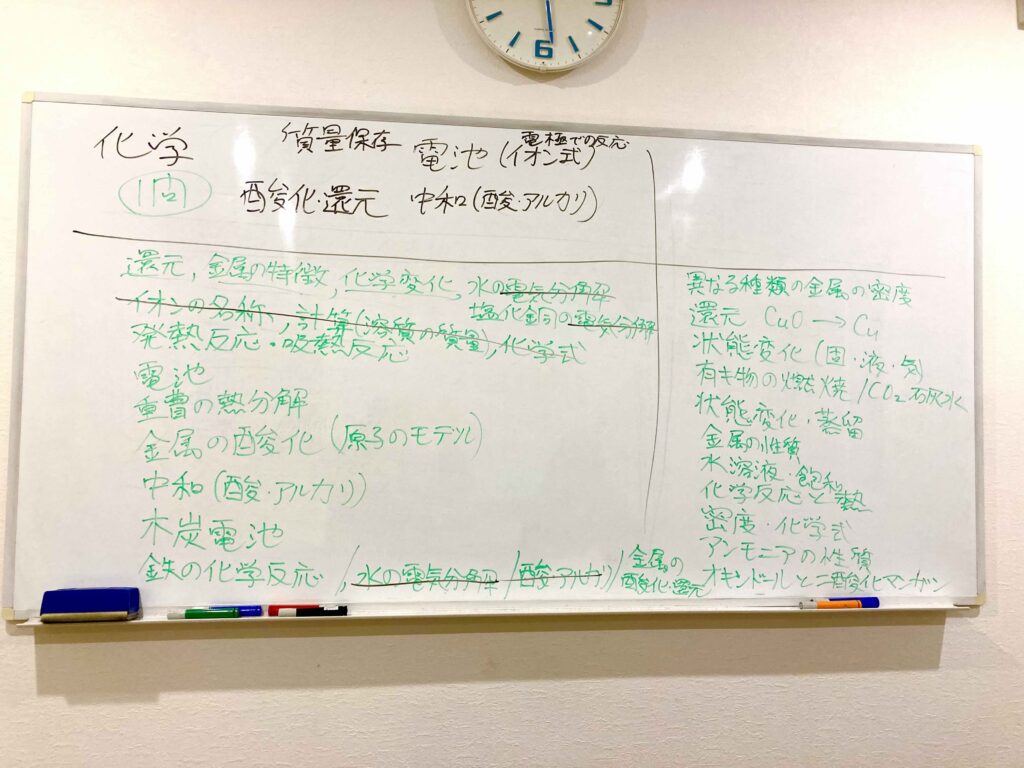 6
化学 質量保存 電池(イオン式) 電極での反応
1問 酸化・還元 中和(酸・アルカリ)
還元, 金属の特徴, 化学変化, 水の電気分解
イオンの名称, 計算(溶質の質量), 化学式 塩化銅の電気分解
発熱反応・吸熱反応
電池
重曹の熱分解
金属の酸化(原子のモデル)
中和(酸・アルカリ)
木炭電池
鉄の化学反応/, 水の電気分解/酸アルカリ/金属の酸化・還元
異なる種類の金属の密度
還元 CuO→Cu
状態変化(固・液・気)
有キ物の燃焼/CO2石灰水
状態変化・蒸留
金属の性質
水溶液・飽和
化学反応と熱
密度・化学式
アンモニアの性質
オキシドールと二酸化マンガン